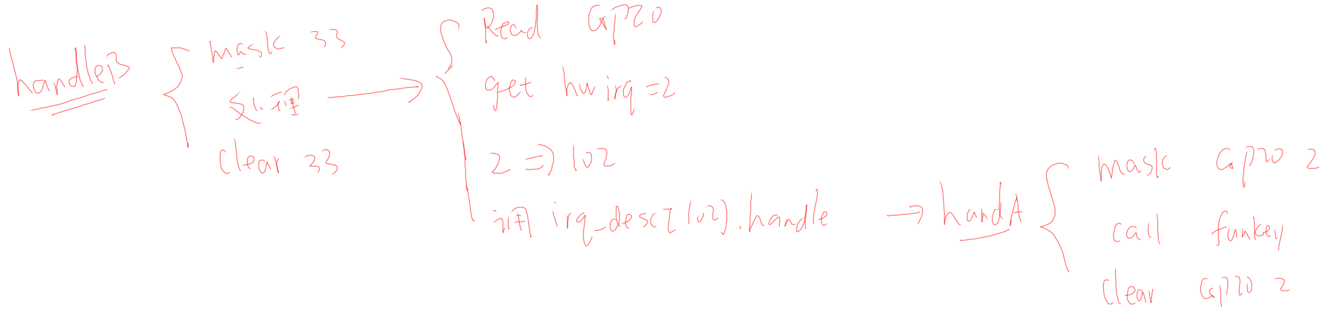 handleB
mask 33
处理
clear 33
Read GPIO
get hwirq=2
2 => 102
调用 irq_desc[102].handle
handA
mask GPIO 2
call funkey
clear GPIO 2